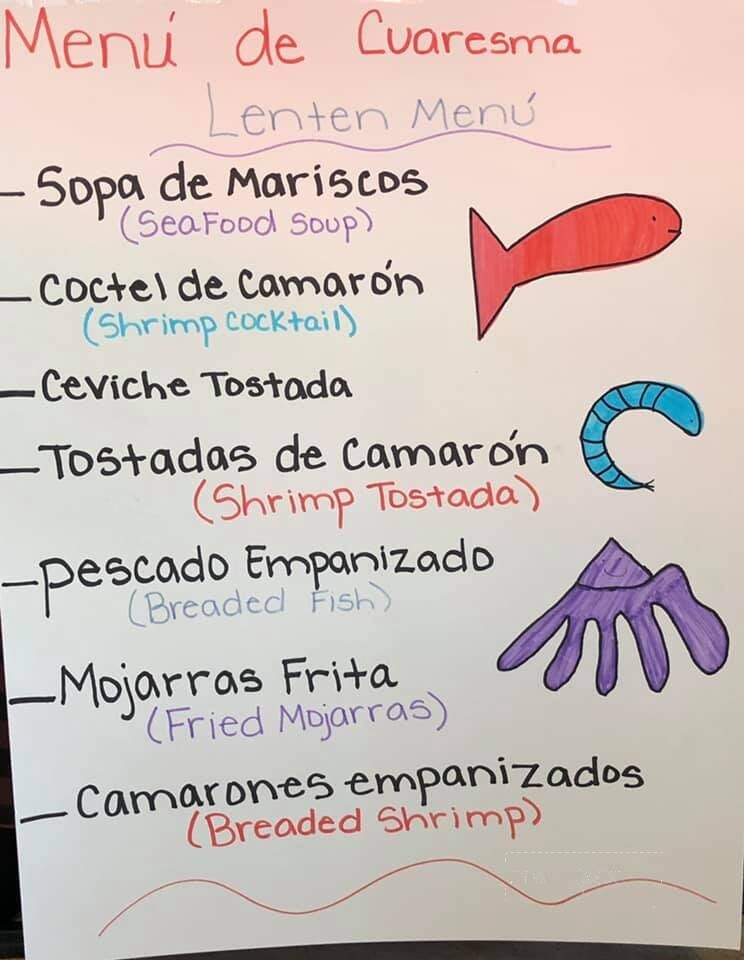 Menú de Cuaresma
Lenten Menú
- Sopa de Mariscos
(SeaFood Soup)
- Coctel de Camarón
(Shrimp Cocktail)
- Ceviche Tostada
- Tostadas de Camarón
(Shrimp Tostada)
- Pescado Empanizado
(Breaded Fish)
- Mojarras Frita
(Fried Mojarras)
- Camarones empanizados
(Breaded Shrimp)